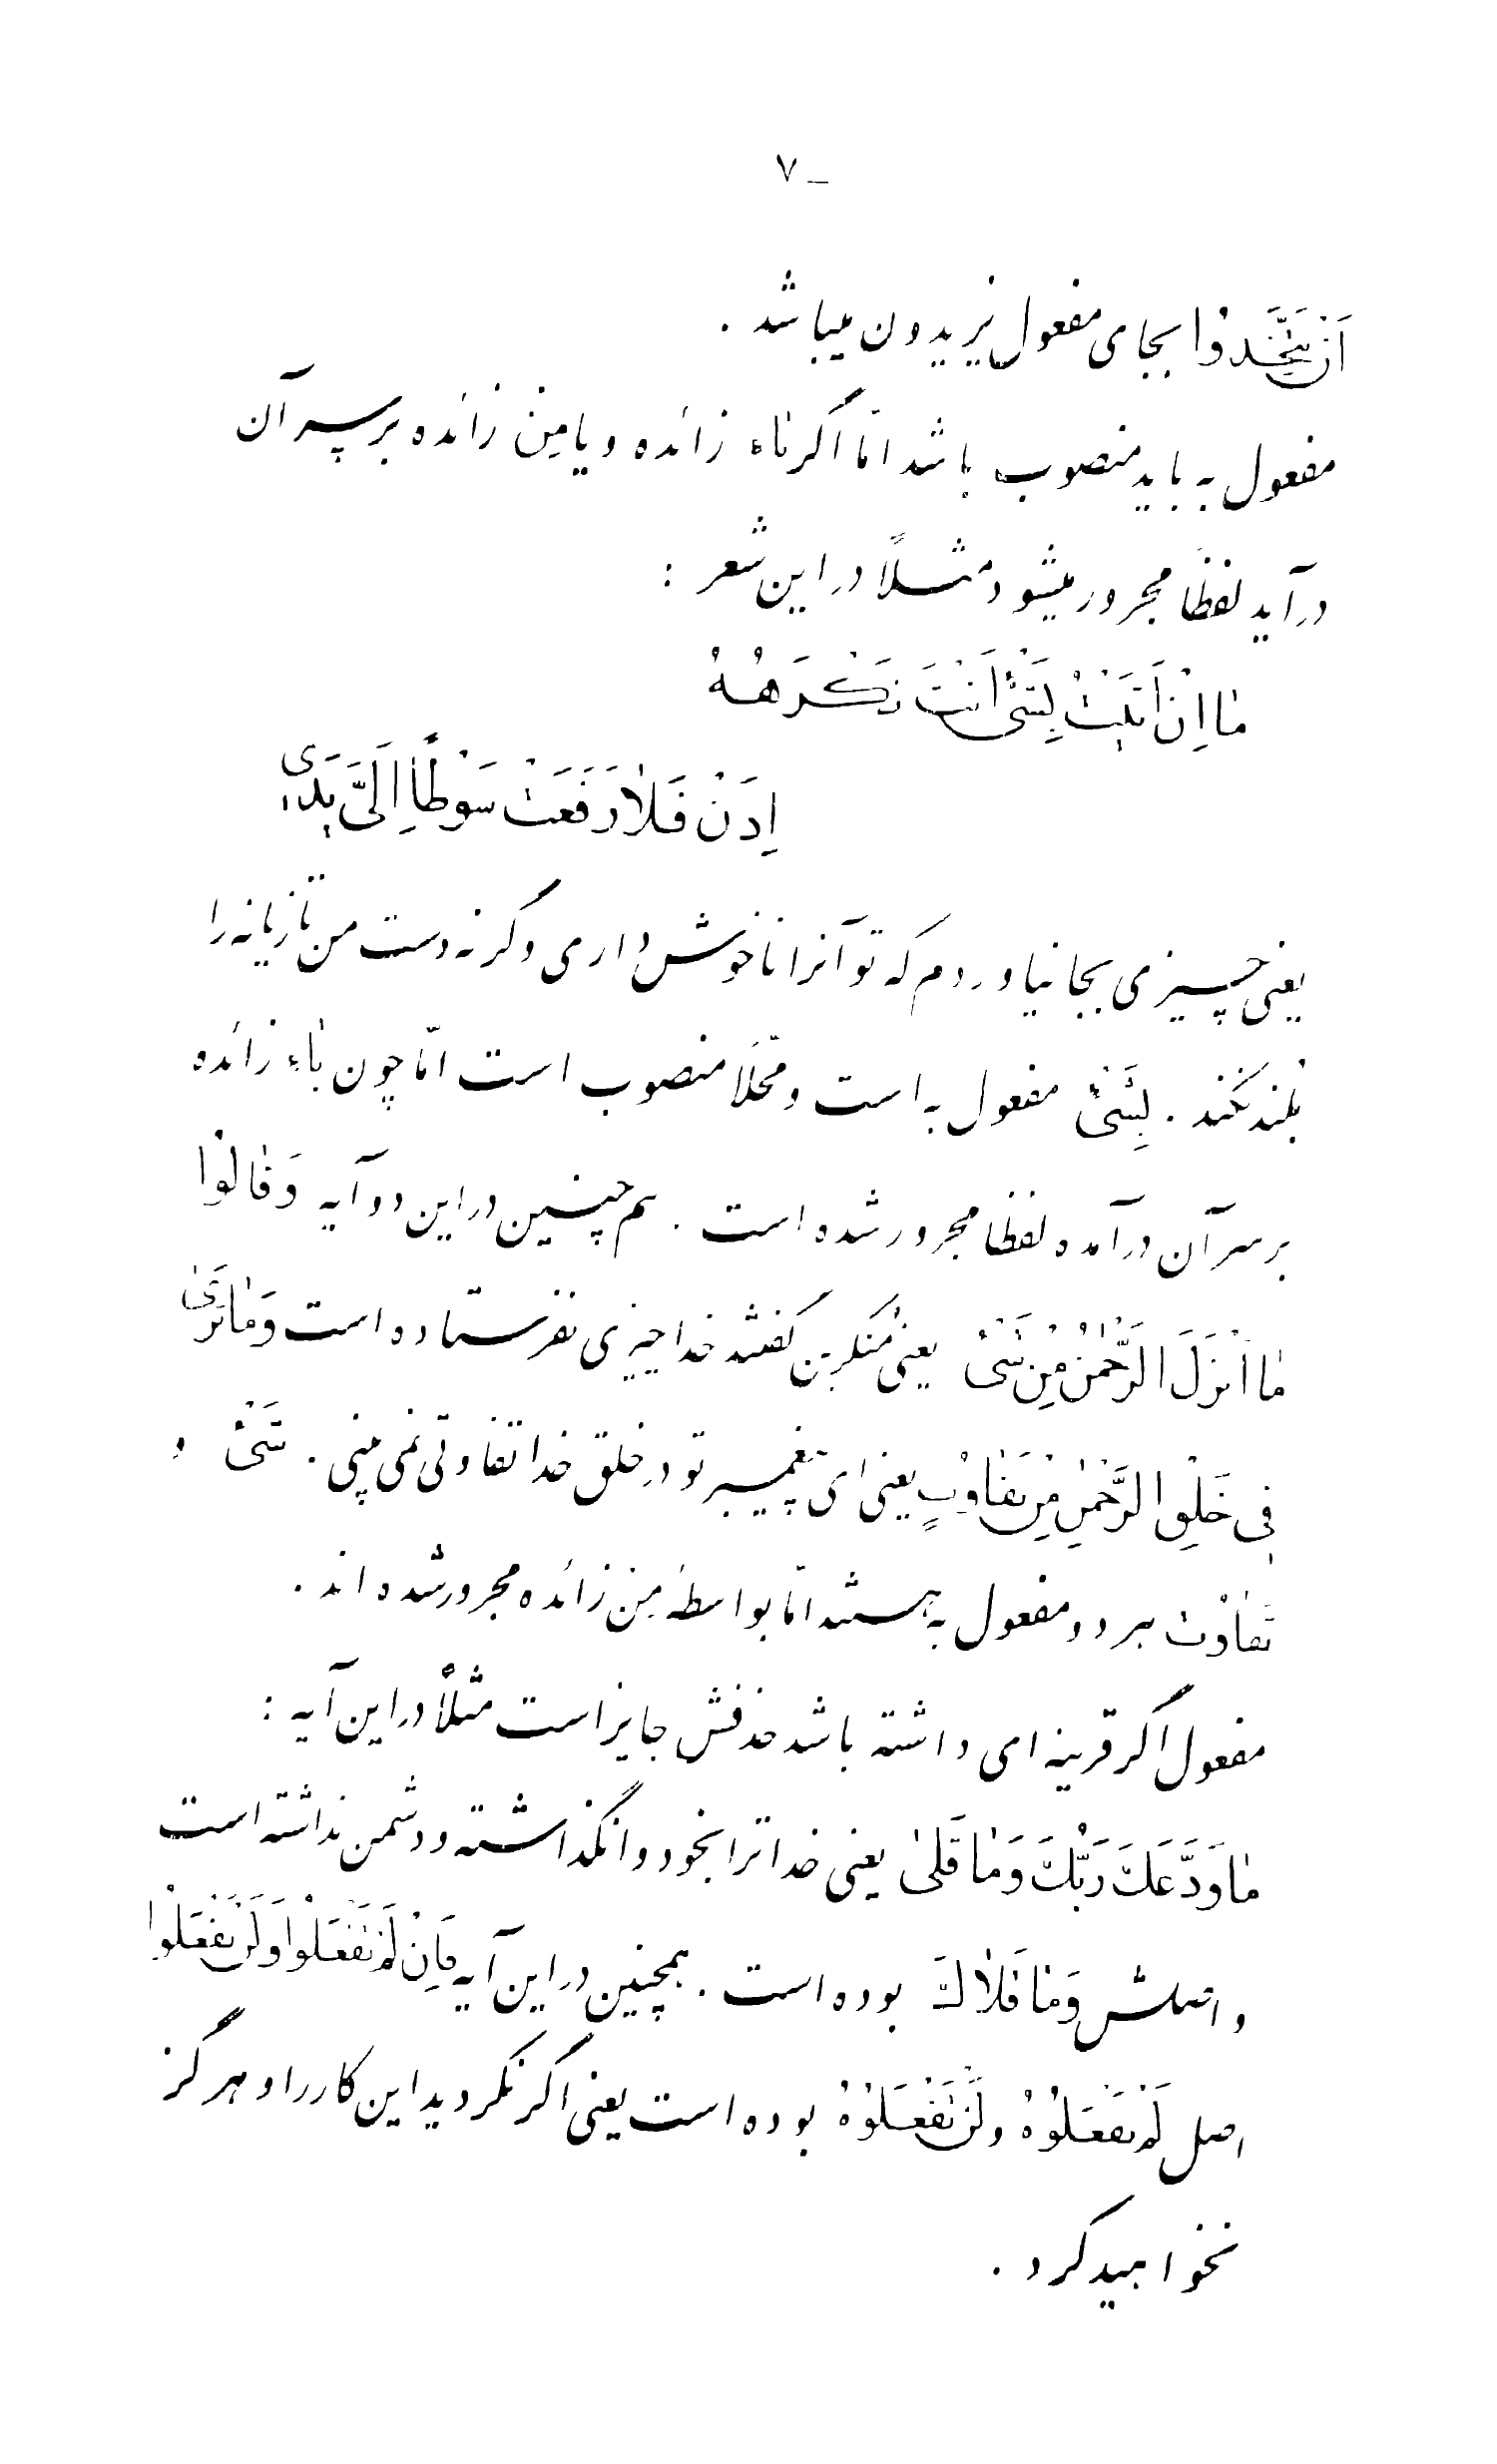 _ ٧
اَنْ يَتَّخِذُوا بجای مفعول یریدون میباشد .
مفعول به باید منصوب باشد امّا اگر باء زائده و یا مِن زائده بر سر آن
در آید لفظاً مجرور میشود مثلاً در این شعر :
مٰا اِنْ اَتَيْتُ بِشَىْءٍ اَنْتَ تَكْرَهُهُ
اِذَنْ فَلاٰ رَفَعَتْ سَوْطًا اِلَىَّ يَدى
یعنی چیزی بجا نیاوردم که تو آنرا ناخوش داری وگرنه دست من تازیانه را
بلند نکند . بِشَىْءٍ مفعول به است و محلّاً منصوب است امّا چون باء زائده
بر سر آن در آمده لفظاً مجرور شده است . هم چنین در این دو آیه وَقٰالُوْا
مٰا اَنْزَلَ الرَّحْمٰنُ مِنْ شَىْءٍ یعنی منکرین گفتند خدا چیزی نفرستاده است وَمٰا تَرىٰ
فِى خَلْقِ الرَّحْمٰنِ مِنْ تَفٰاوُتٍ یعنی ای پیغمبر تو در خلق خدا تفاوتی نمی بینی . شَىْءٍ و
تَفٰاوُت هر دو مفعول به هستند امّا بواسطهٔ مِن زائده مجرور شده اند .
مفعول اگر قرینه ای داشته باشد حذفش جایز است مثلاً در این آیه :
مٰا وَدَّعَكَ رَبُّكَ وَمٰا قَلىٰ یعنی خدا ترا بخود وانگذاشته و دشمن نداشته است
و اصلش وَمٰا قَلاٰكَ بوده است . همچنین در این آیه فَاِنْ لَمْ تَفْعَلُوْا وَلَنْ تَفْعَلُوْا
اصل لَمْ تَفْعَلُوْهُ و لَنْ تَفْعَلُوْهُ بوده است یعنی اگر نکردید این کار را و هرگز
نخواهید کرد .